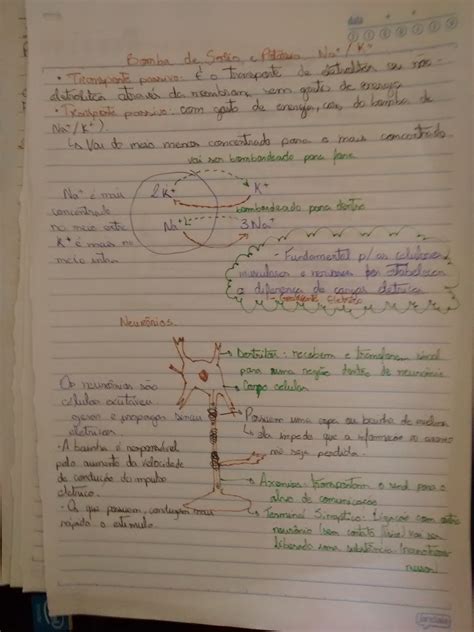 Bomba de Sódio e Potássio Na⁺/K⁺
• Transporte passivo: É o transporte de eletrólitos ou não-
eletrólitos através da membrana, sem gasto de energia
• Transporte passivo: com gasto de energia, caso da bomba de
Na⁺/K⁺)
↳ Vai do meio menos concentrado para o mais concentrado
vai ser bombardeado para fora
Na⁺ é mais
concentrado
no meio extra
K⁺ é mais no
meio intra
2K⁺
K⁺
bombardeado para dentro
Na⁺
3Na⁺
- Fundamental p/ as células
musculares e nervosas por estabelecer
a diferença de cargas elétrica
Gradiente Elétrico
Neurônios.
Os neurônios são
células excitáveis
geram e propagam sinais
elétricos.
• A bainha é responsável
pelo aumento da velocidade
de condução do impulso
elétrico.
• Os que possuem, conduzem mais
rápido o estímulo.
Dentritos: recebem e transferem sinal
para uma região dentro do neurônio
Corpo celular
Possuem uma capa ou bainha de mielina
↳ Ela impede que a informação
seja perdida.
Axônios: transportam o sinal para o
alvo de comunicação
Terminal Sináptico: Ligação com outro
neurônio (sem contato físico) vai ser
liberado uma substância (neurotrans
missor)
jandaia